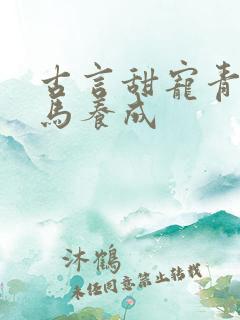 古言甜寵青
馬養成
沐鶴
未經同意禁止轉載